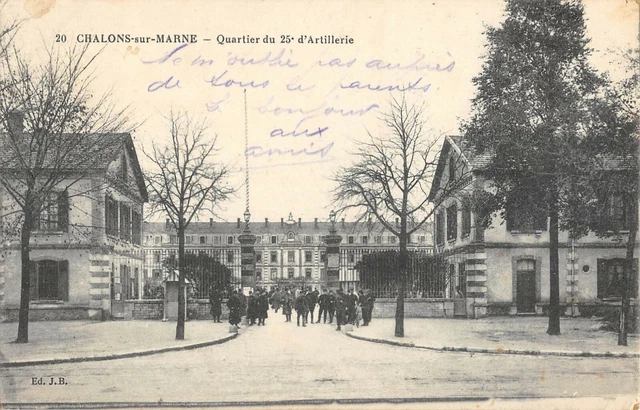 20 CHALONS-sur-MARNE – Quartier du 25e d'Artillerie
Ne m'oublie pas auprès
de tous les parents.
Le bonjour
aux
amis
Ed. J.B.